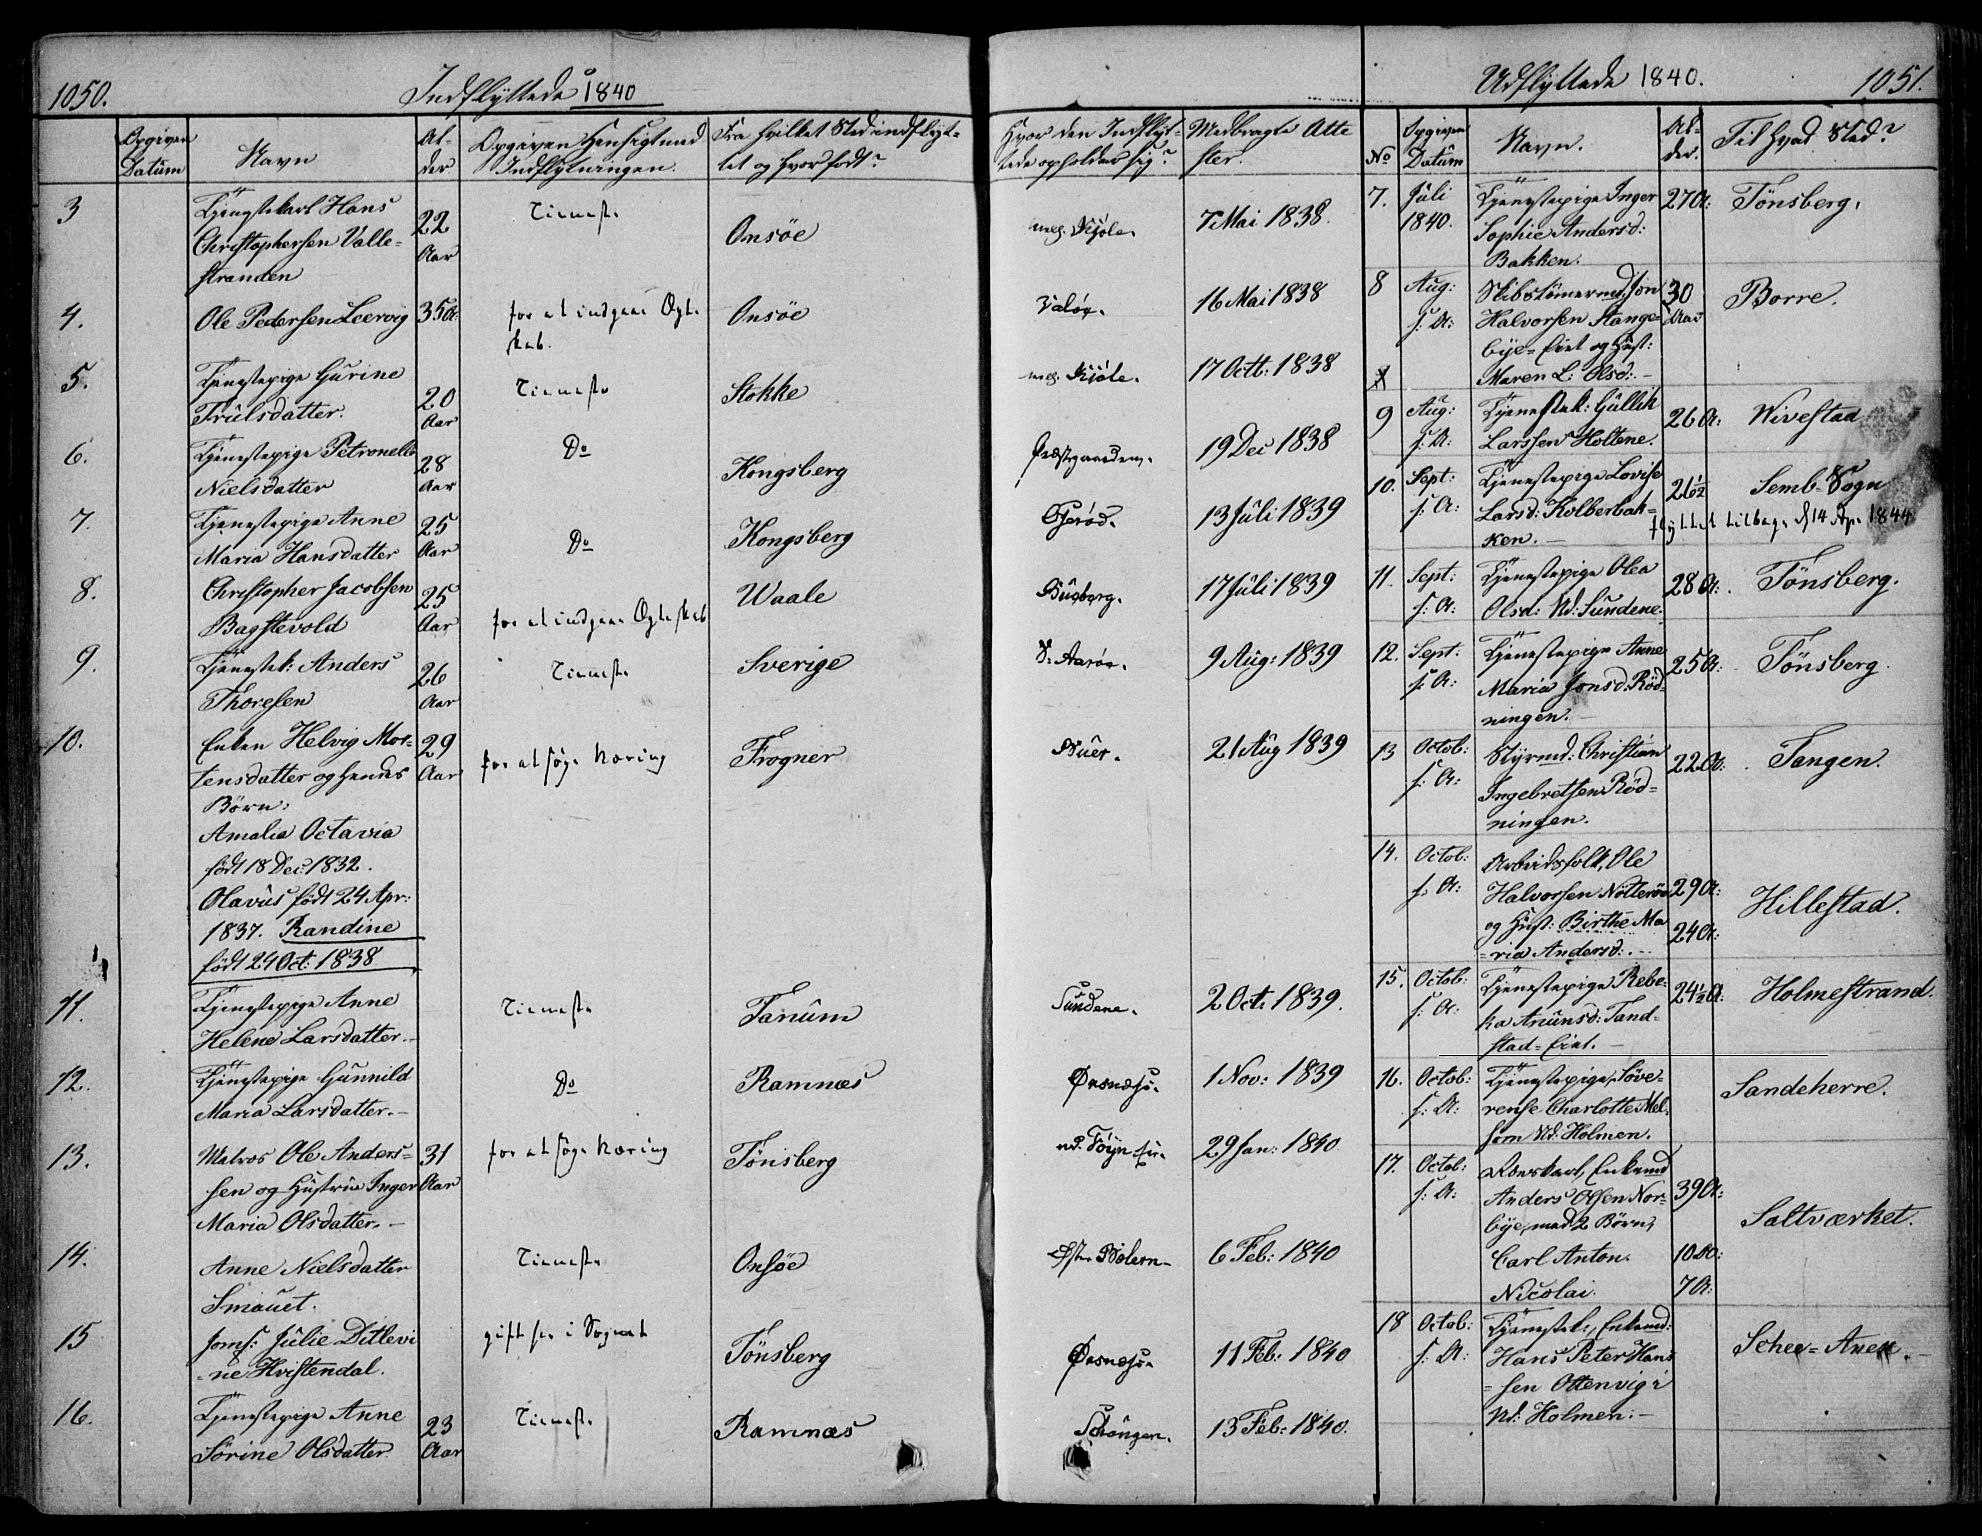 1050.
Indflyttede 1840
Opgiven Datum
Navn
Alder
Opgiven Hensigt med Indflytningen.
Fra hvilket Sted indflyttet og hvor født?
Hvor den Indflyttede opholder sig?
Medbragte Atte
ster.
3
Tjenestekarl Hans
Christophersen Valle-
stranden
22 Aar
Tieneste
Onsöe
Kjöle.
7 Mai 1838.
4.
Ole Pedersen Leervig
35 A:
for at indgaae Ægte-
skab.
Onsöe
Valöe.
16 Mai 1838
5.
Tjenestepige Gurine
Trulsdatter.
20 Aar
Tieneste
Stokke
Kjöle.
17 Octb: 1838
6.
Tjenestepige Petronelle
Nielsdatter
28 Aar
Do
Kongsberg
Præstgaarden.
19 Dec 1838
7.
Tjenestepige Anne
Maria Hansdatter
25 Aar
Do
Kongsberg
13 Juli 1839
8.
Christopher Jacobsen
Bagstevold
25 Aar
for at indgaae Ægteskab
Waale
Bueberg.
17 Juli 1839
9.
Tjenestek: Anders
Thoresen
26 Aar
Tieneste
Sverige
Aaröe.
9 Aug: 1839
10.
Enken Helvig Mor-
tensdatter og hendes
Börn:
Amalia Octavia
födt 18 Dec: 1832.
Olavus födt 24 Apr:
1837. Randine
födt 29 Oct: 1838
29 Aar
for at söge Næring
Frogner
Buer.
21 Aug 1839
11.
Tjenestepige Anne
Helene Larsdatter.-
Tieneste
Tanum
Sundene.
2 Oct: 1839.
12.
Tjenestepige Gunnild
Maria Larsdatter.-
Do
Ramnæs
Ørsnæs.
1 Nov: 1839
13.
Matros Ole Anders-
sen og Hustrue Inger
Maria Olsdatter.-
31 Aar
for at söge Næring
Tönsberg
nd. Föyn
29 Jan: 1840
14.
Anne Nielsdatter
Smauet.
Tieneste
Onsöe
Østre Bolern
6 Feb: 1840
15
Jomf: Julie Ditlevi
-ne Hvistendal.
gift her i Sognet
Tönsberg
Ørsnæs.
11 Feb: 1840
16.
Tjenestepige Anne
Sörine Olsdatter
23 Aar
Tieneste
Ramnæs
13 Feb: 1840.
Udflyttede 1840.
1051.
No
Opgiven Datum
Navn.
Alder.
Til hvad Sted?
7.
Juli 1840.
Tjenestepige Inger
Sophie Andersd:
Bakken.
27 A:
Tönsberg.
8
Aug: s: A:
Skibstömermd. Jon
Halvorsen Stange-
bye-Eiet og Hust:
Maren L: Olsd:-
30 Aar
Borre.
9
Aug: s: A:
Tjenestek: Gullik
Larssen Holtene.
26 A:
Wivestad
10.
Sept: s: A:
Tjenestepige Lovise
Larsd: Kolberbak-
ken.-
21 1/2
Semb-Sogn
flyttet tilbage d 14 Apr 1844
11.
Sept: s: A:
Tjenestepige Olea
Olsd: Nd: Sundene.
28 A:
Tönsberg.
12.
Sept: s: A:
Tjenestepige Anne
Maria Jonsd: Röd-
ningen.-
25 A:
Tönsberg.
13
Octob: s: A:
Styrmd: Christian
Ingebretsen Röd-
ningen.
22 A:
Tangen.
14.
Octob: s: A:
Arbeidsfolk, Ole
Halvorsen Nötteröe
og Hust: Birthe Ma
-ria Andersd:.-
29 A:
24 A:
Hillestad.
15.
Octob: s: A:
Tjenestepige Rebe-
ka Anunsd: Tand-
stad-Eiet.-
24 1/2 A:
Holmestrand.
16.
Octob: s: A:
Tjenestepige, Söve-
rense Charlotte Mel-
som Nd: Holmen.
Sandeherre.
17.
Octob: s: A:
Enkemd
Anders Olsen Nor-
bye, med 2 Börn,
Carl Anton.
Nicolai.
39 A:
10 A:
7 A:
Saltværket.
18
Octob: s: A:
Tjenestek, Enkemd:
Hans Peter Hans
-sen Ottenvig i
Nd: Holmen.-